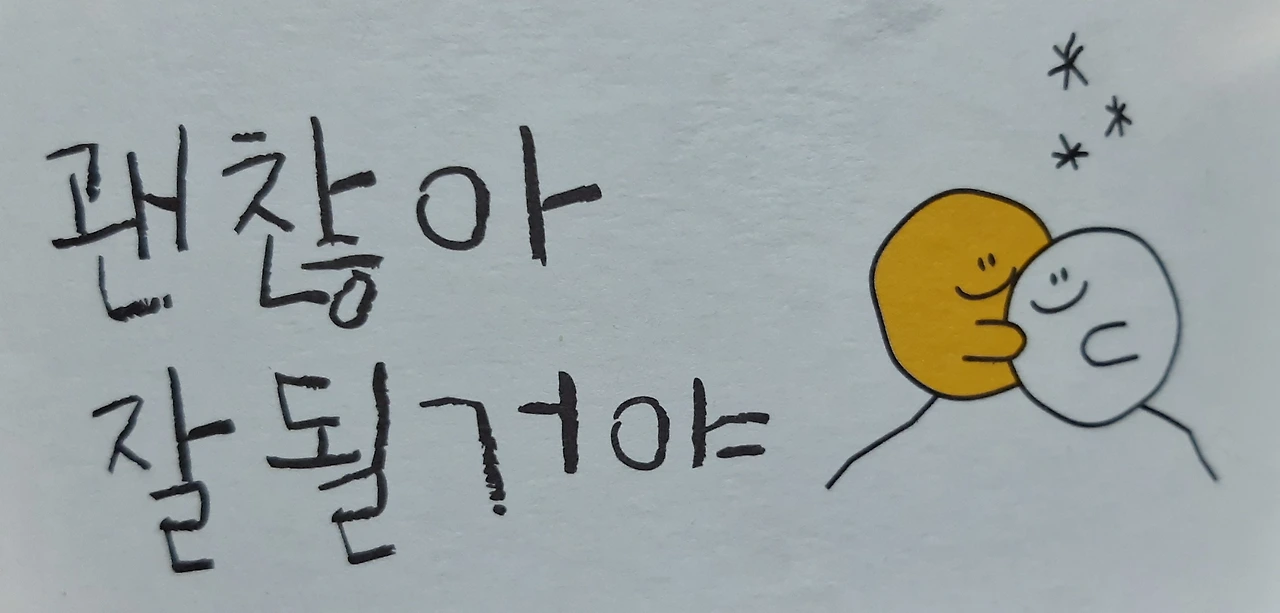 괜찮아
잘될거야